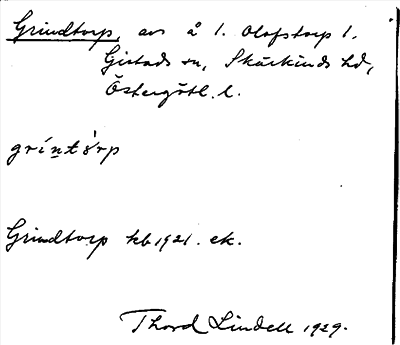 Grindtorp, avs å 1. Olofstorp 1.
Gistads sn, Skärkinds hd,
Östergötl. l.
gríntòrp
Grindtorp kb 1921. ek.
Thord Lindell 1929.